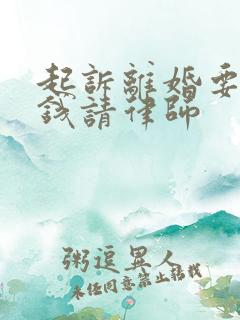 起訴離婚要
錢請律師
粥逗異人
未任同意禁止轉載